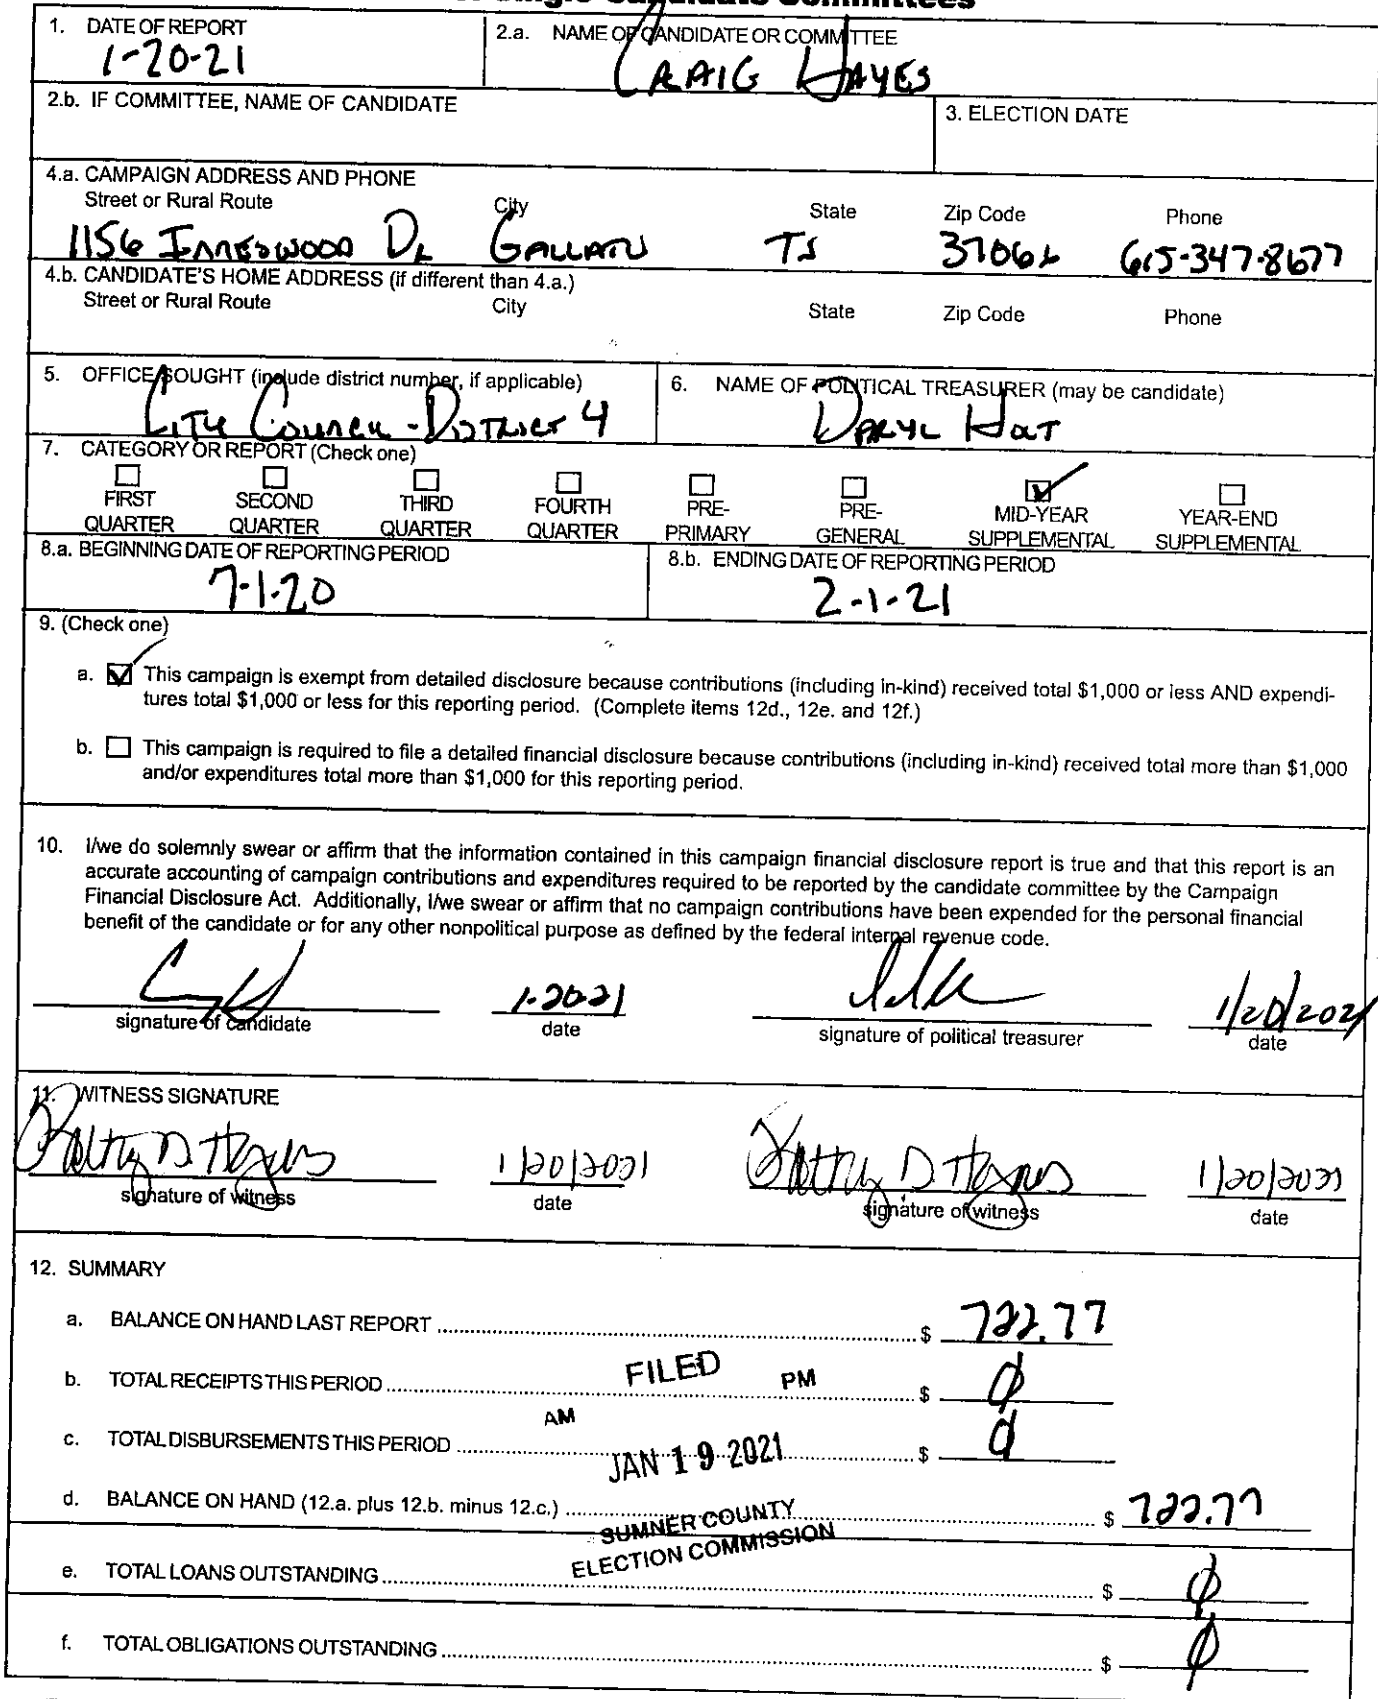 Single Candidate Committees
1. DATE OF REPORT
1-20-21
2.a. NAME OF CANDIDATE OR COMMITTEE
CRAIG HAYES
2.b. IF COMMITTEE, NAME OF CANDIDATE
3. ELECTION DATE
4.a. CAMPAIGN ADDRESS AND PHONE
Street or Rural Route City State Zip Code Phone
1156 DR GALLATIN TN 37066 615-347-8677
4.b. CANDIDATE'S HOME ADDRESS (if different than 4.a.)
Street or Rural Route City State Zip Code Phone
5. OFFICE SOUGHT (include district number, if applicable)
CITY COUNCIL - DISTRICT 4
6. NAME OF POLITICAL TREASURER (may be candidate)
DARYL HOLT
7. CATEGORY OR REPORT (Check one)
FIRST QUARTER
SECOND QUARTER
THIRD QUARTER
FOURTH QUARTER
PRE-PRIMARY
PRE-GENERAL
MID-YEAR SUPPLEMENTAL
YEAR-END SUPPLEMENTAL
8.a. BEGINNING DATE OF REPORTING PERIOD
7-1-20
8.b. ENDING DATE OF REPORTING PERIOD
2-1-21
9. (Check one)
a. This campaign is exempt from detailed disclosure because contributions (including in-kind) received total $1,000 or less AND expendi-
tures total $1,000 or less for this reporting period. (Complete items 12d., 12e. and 12f.)
b. This campaign is required to file a detailed financial disclosure because contributions (including in-kind) received total more than $1,000
and/or expenditures total more than $1,000 for this reporting period.
10. I/we do solemnly swear or affirm that the information contained in this campaign financial disclosure report is true and that this report is an
accurate accounting of campaign contributions and expenditures required to be reported by the candidate committee by the Campaign
Financial Disclosure Act. Additionally, I/we swear or affirm that no campaign contributions have been expended for the personal financial
benefit of the candidate or for any other nonpolitical purpose as defined by the federal internal revenue code.
1-20-21 1/20/2021
signature of candidate date signature of political treasurer date
11. WITNESS SIGNATURE
1/20/2021 1/20/2021
signature of witness date signature of witness date
12. SUMMARY
a. BALANCE ON HAND LAST REPORT $ 722.77
b. TOTAL RECEIPTS THIS PERIOD $ 0
c. TOTAL DISBURSEMENTS THIS PERIOD $ 0
d. BALANCE ON HAND (12.a. plus 12.b. minus 12.c.) $ 722.77
e. TOTAL LOANS OUTSTANDING $ 0
f. TOTAL OBLIGATIONS OUTSTANDING $ 0
FILED
AM PM
JAN 19 2021
SUMNER COUNTY
ELECTION COMMISSION